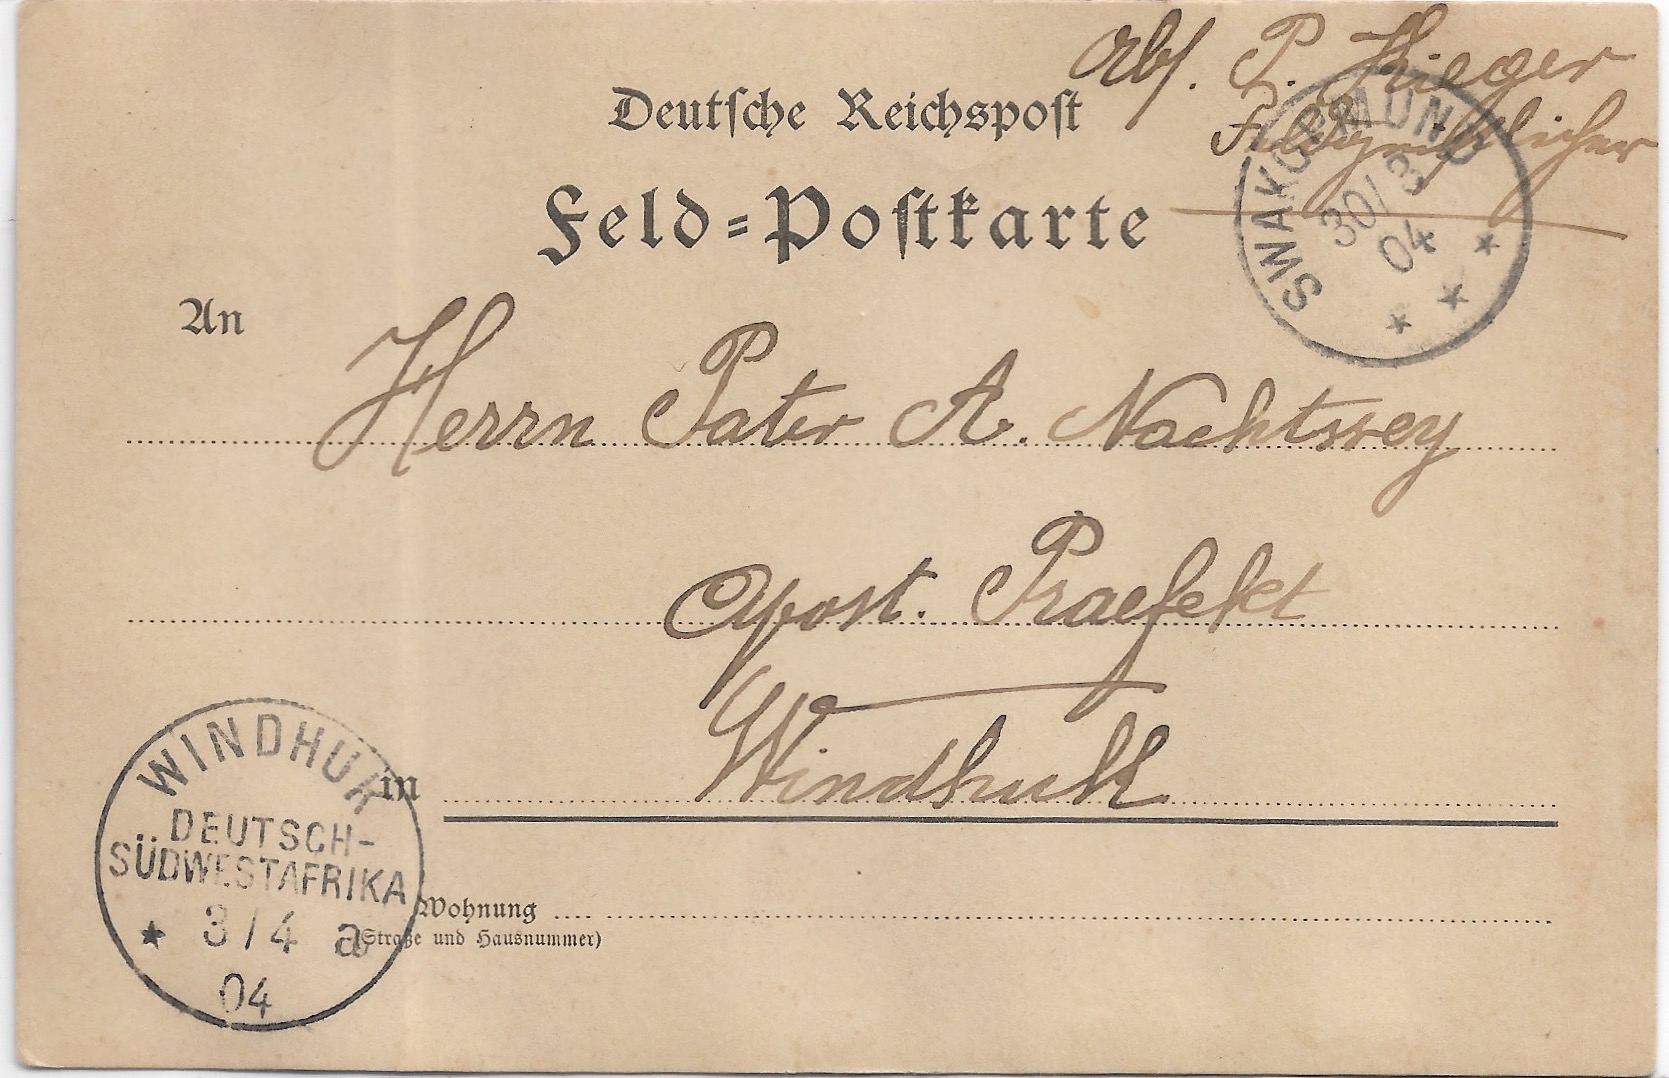 Abs. P. Kieger
Feldgeistlicher
Deutsche Reichspost
Feld-Postkarte
SWAKOPMUND
30/3
04
An
Herrn Pater A. Nachtwey
Apost. Praefekt
in Windhuk
WINDHUK
DEUTSCH-
SÜDWESTAFRIKA
3/4 a
04
Wohnung
(Straße und Hausnummer)